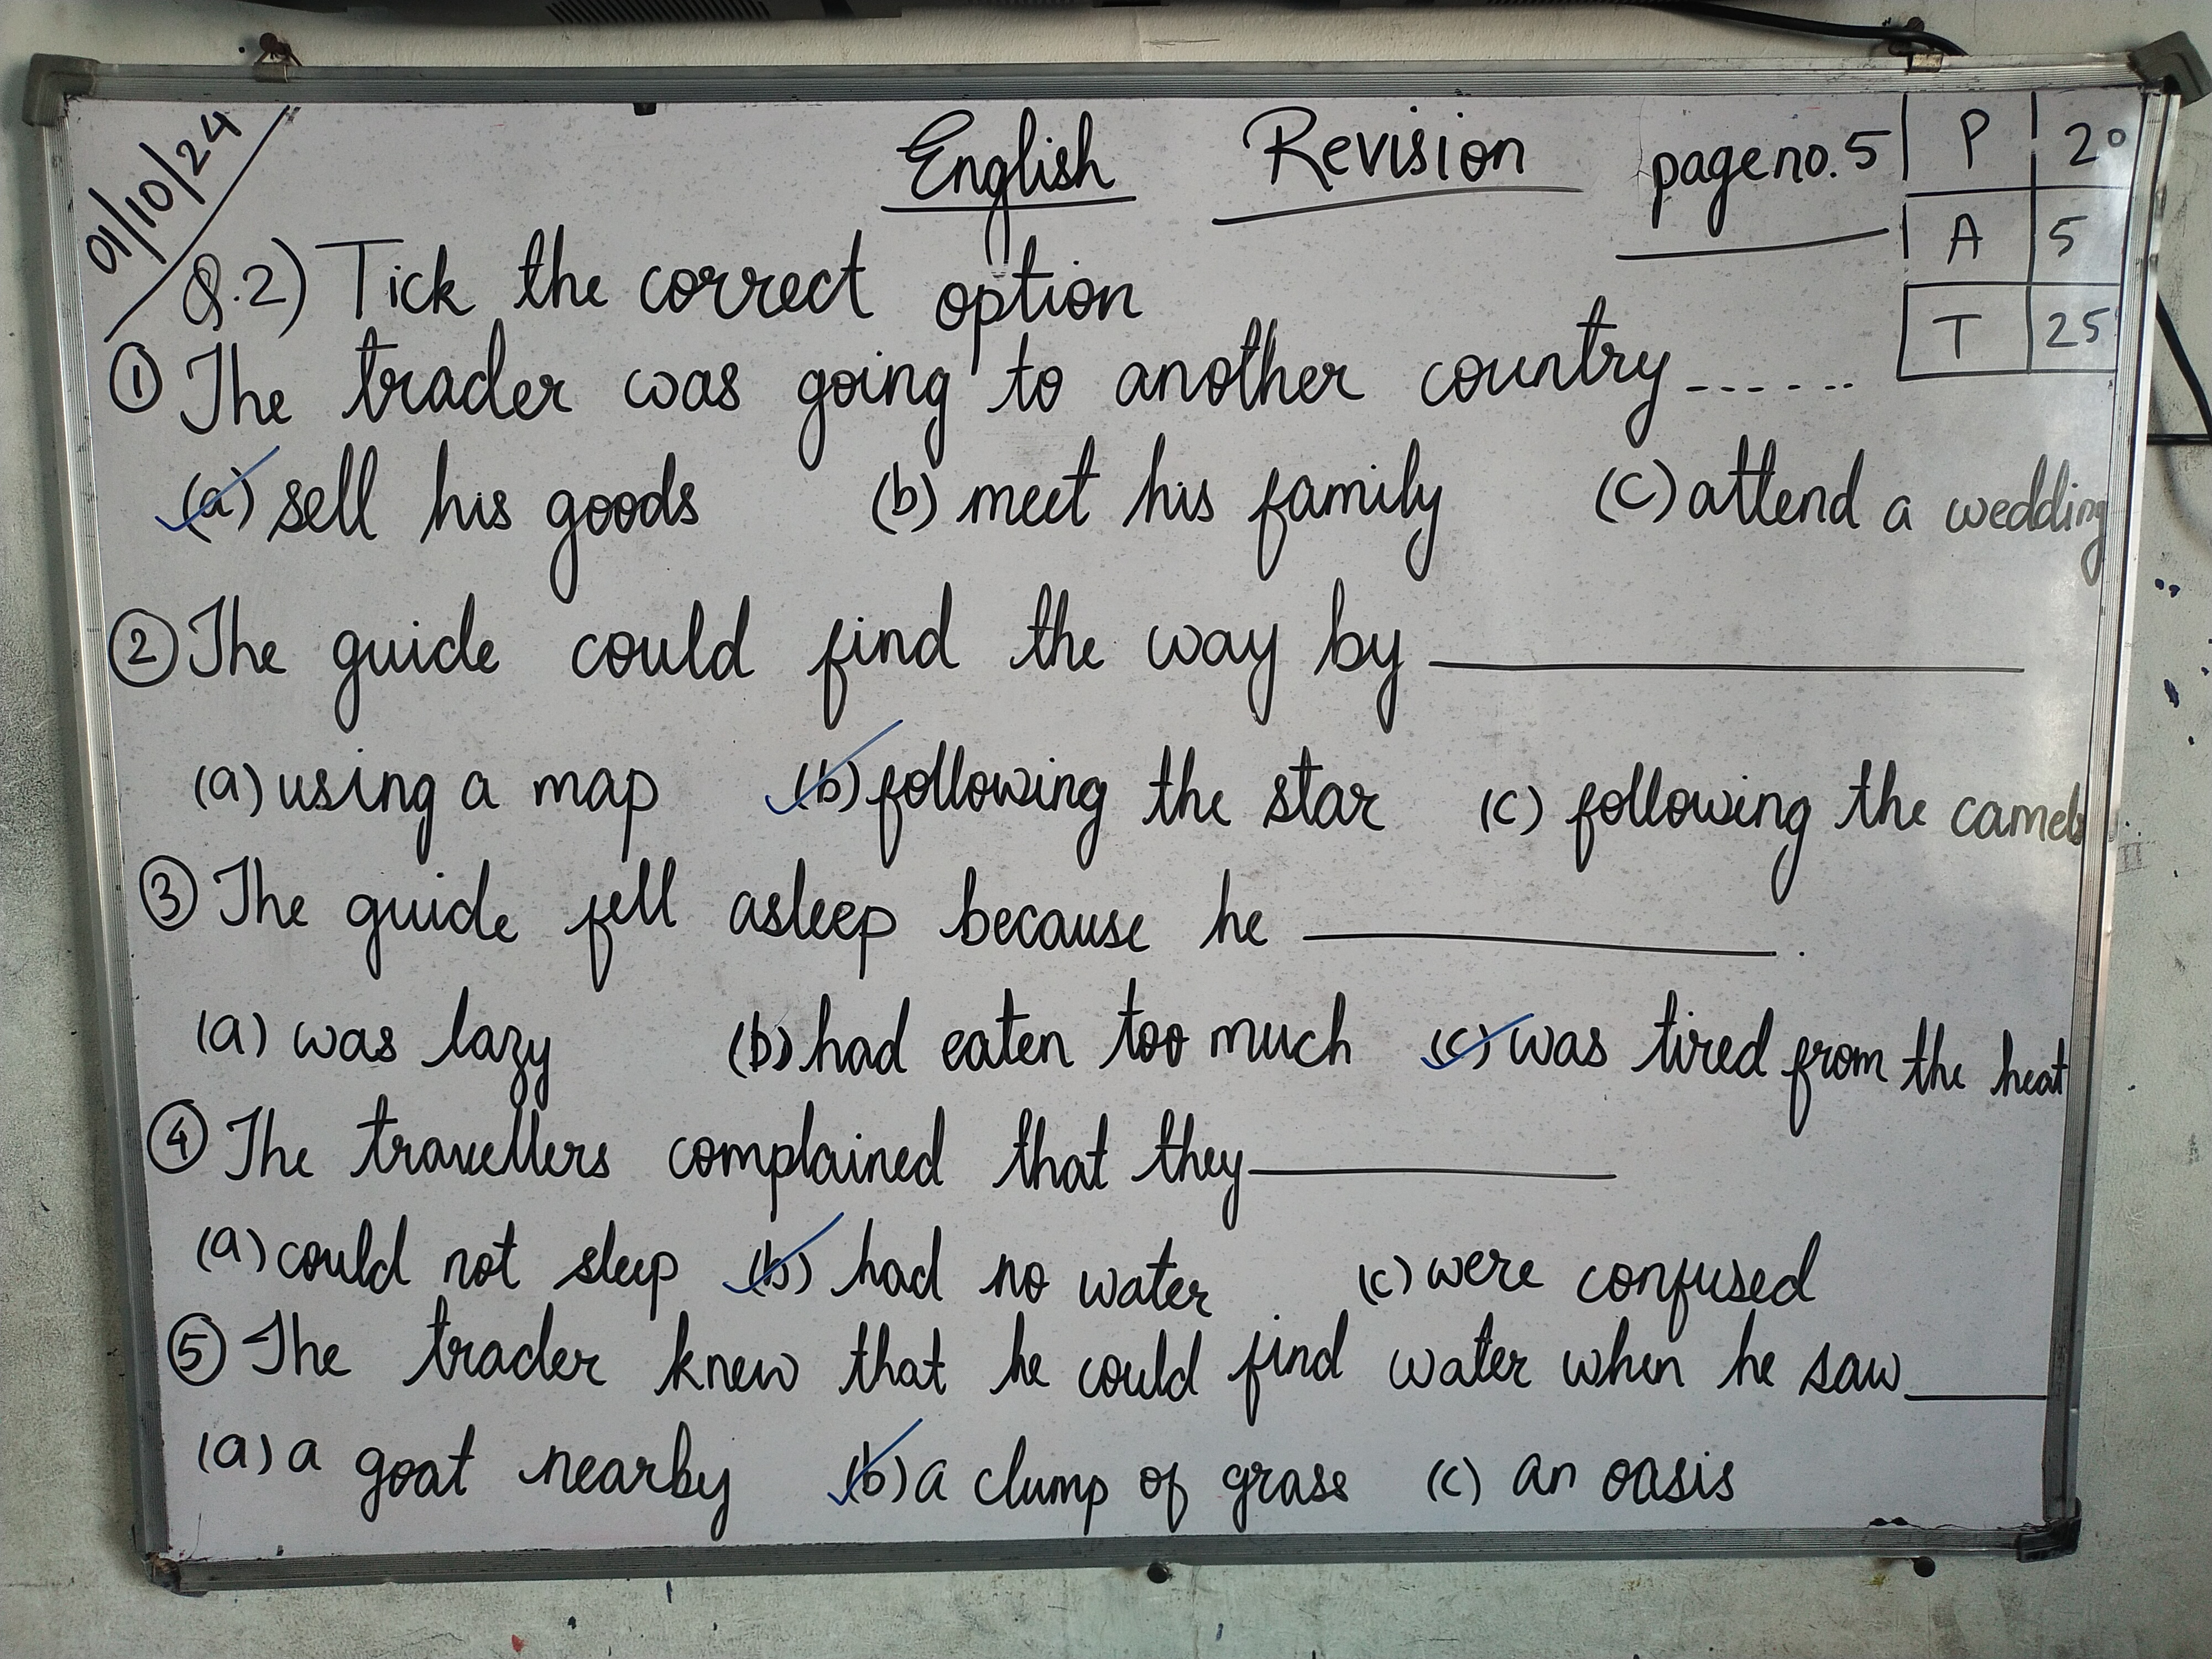 01/10/24
English Revision page no. 5
P 20
A 5
T 25
Q.2) Tick the correct option
① The trader was going to another country ------
(a) sell his goods (b) meet his family (c) attend a wedding
② The guide could find the way by ______
(a) using a map (b) following the star (c) following the camels
③ The guide fell asleep because he ______.
(a) was lazy (b) had eaten too much (c) was tired from the heat
④ The travellers complained that they ______
(a) could not sleep (b) had no water (c) were confused
⑤ The trader knew that he could find water when he saw ______
(a) a goat nearby (b) a clump of grass (c) an oasis